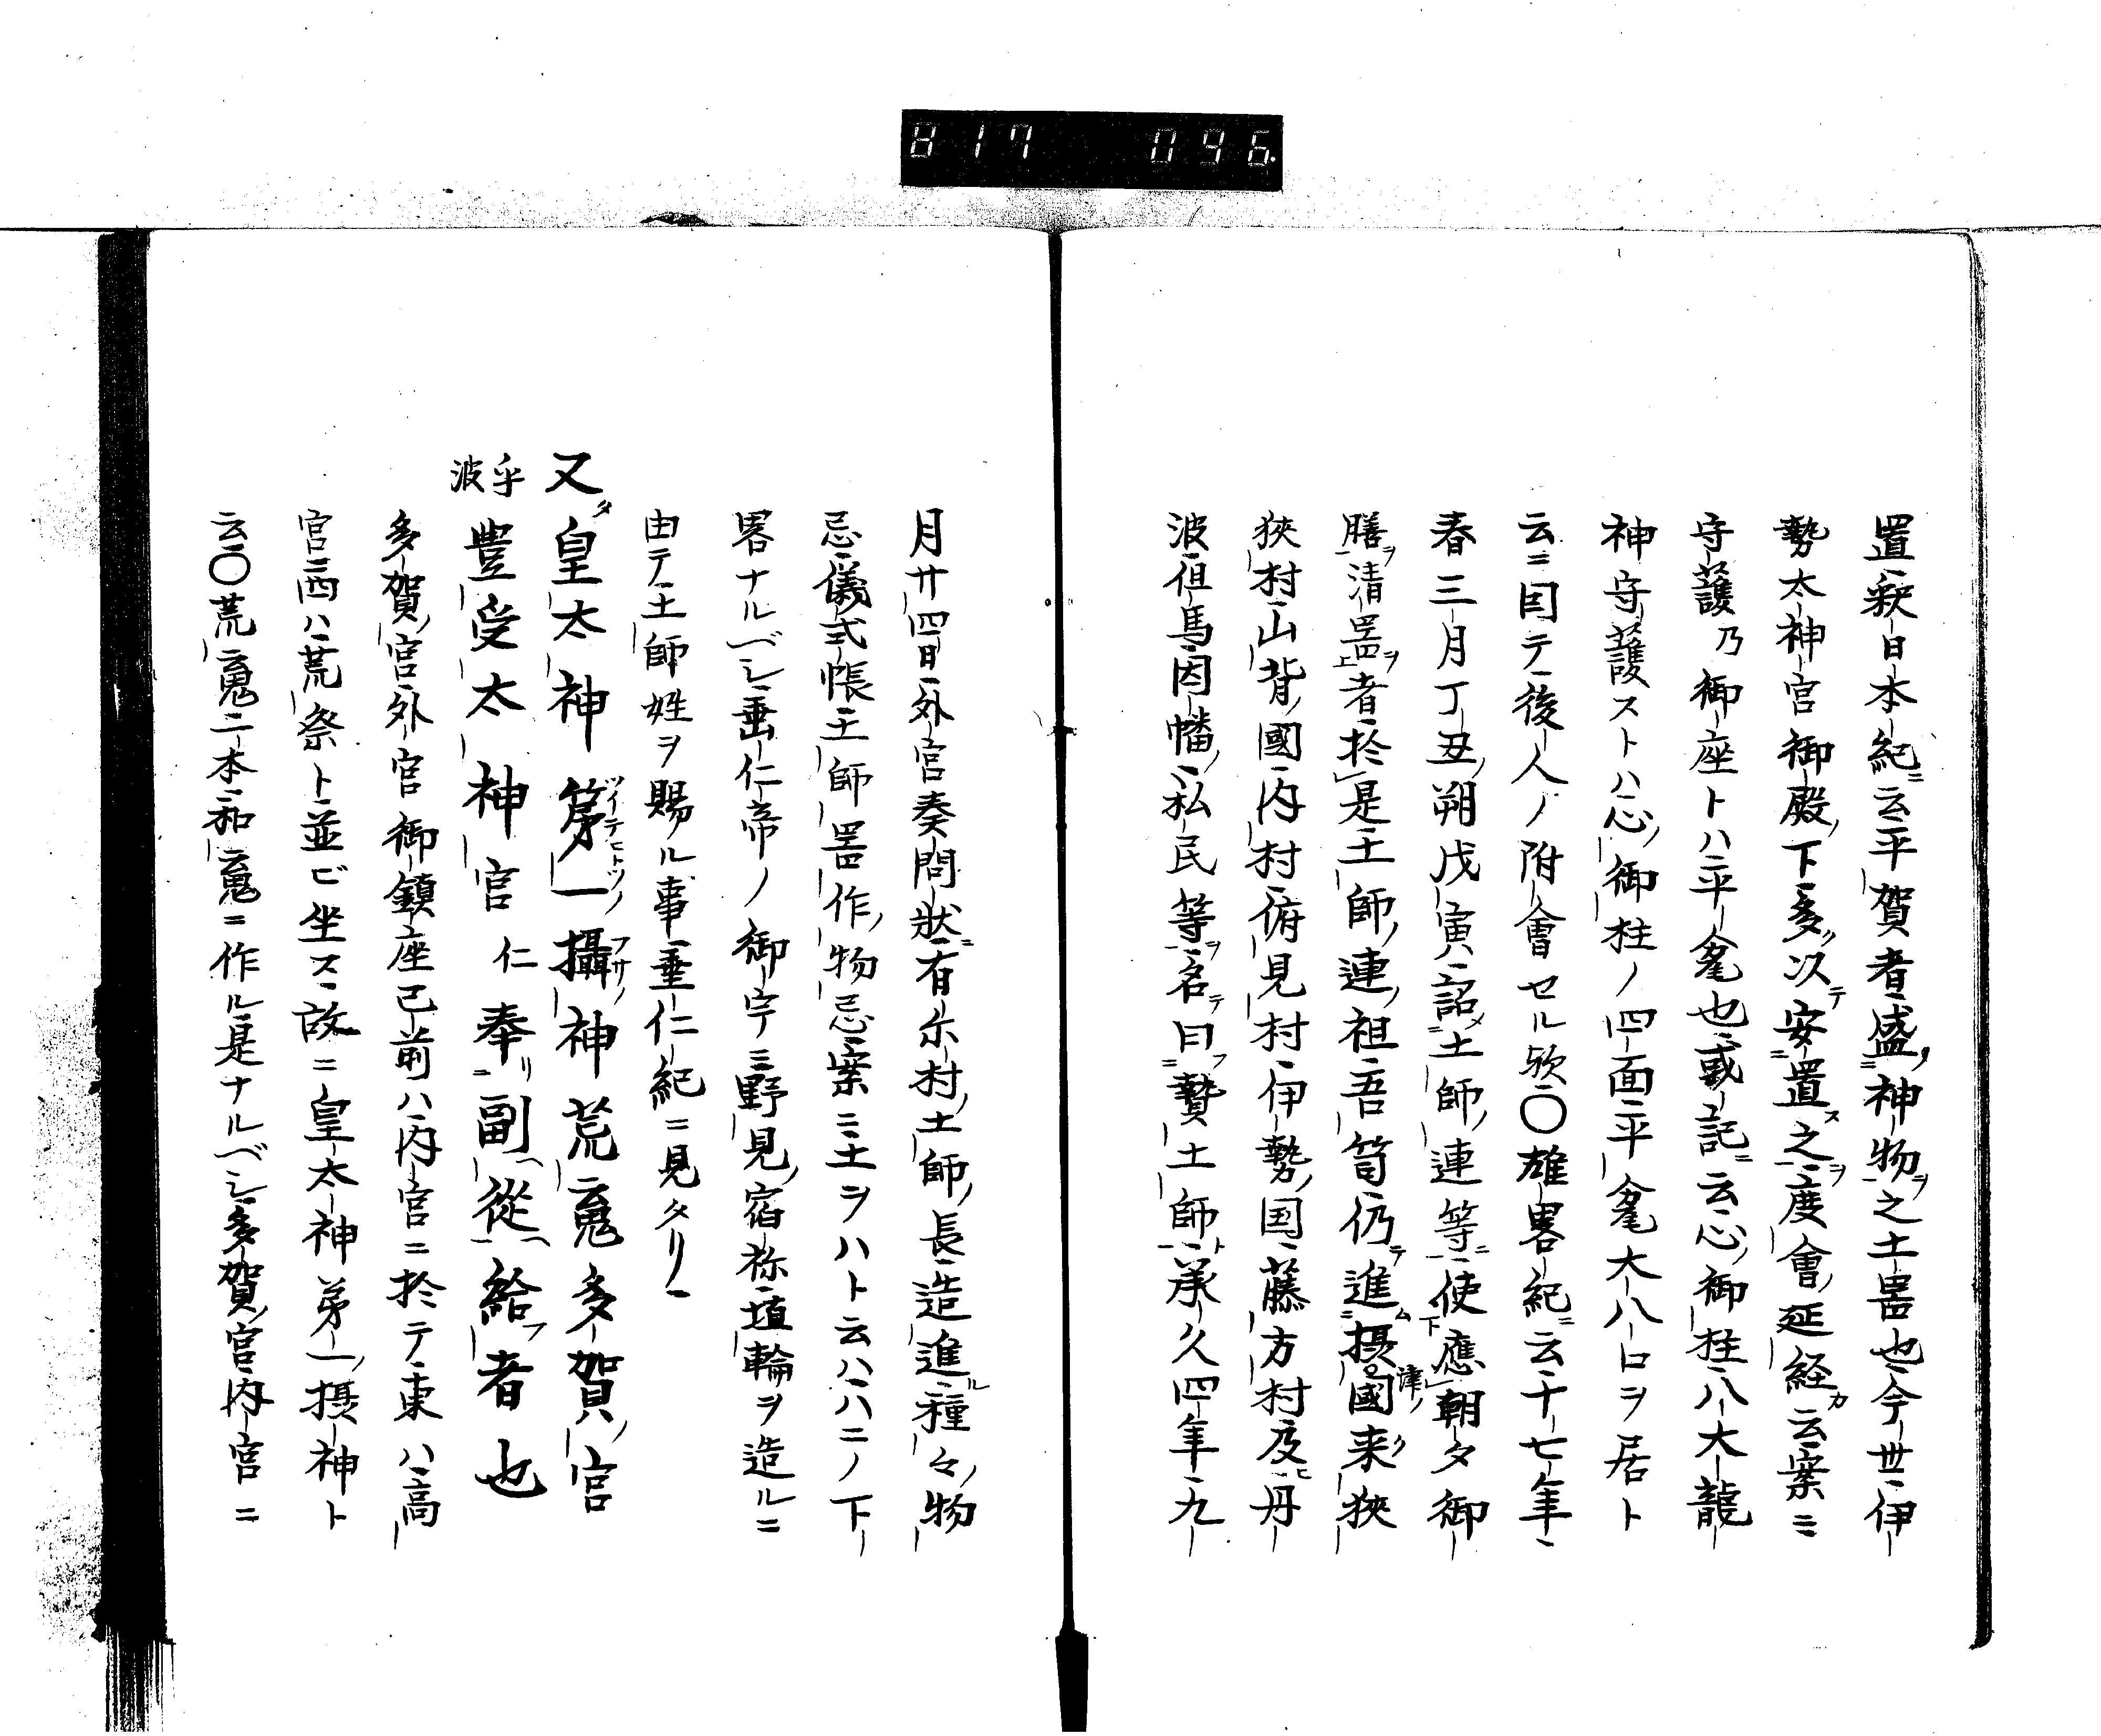 817 096
置釈日本紀ニ云平賀者盛神物之土噐也今世伊
勢太神宮御殿ノ下多ク以テ安置ス之ヲ度會延経カ云案ニ
守護乃御座トハ平瓮也或記ニ云心ノ御柱ハ大龍
神守護ストハ心ノ御柱ノ四面平瓮大八口ヲ居ト
云ニ因テ後人ノ附會セル欤〇雄畧紀ニ云十七年
春三月丁丑ノ朔戊寅詔メ土師ノ連等ニ使應朝夕御
膳ヲ清噐ヲ者於是土師ノ連ノ祖吾笥仍テ進ム摂津ノ國来狹
狹村山背ノ國内村俯見村伊勢ノ国藤方村及ヒ丹
波但馬因幡ノ私民等ヲ名テ曰フ贄土師ト承久四年九
月廿四日外宮奏問状ニ有尓村ノ土師ノ長造進ル種々ノ物
忌儀式帳土師噐作ノ物忌案ニ土ヲハト云ハハニノ下
畧ナルベシ垂仁帝ノ御宇ニ野見ノ宿祢埴輪ヲ造ルニ
由テ土師姓ヲ賜ル事垂仁紀ニ見タリ
又皇太神第一攝神荒䰟多賀ノ宮
乎波豊受太神宮仁奉リ副従給フ者也
多賀ノ宮外宮御鎮座已前ハ内宮ニ於テ東ハ高
宮西ハ荒祭ト並ビ坐ス故ニ皇太神第一ノ摂神ト
云〇荒䰟二本和䰟ニ作ル是ナルベシ多賀ノ宮内宮ニ